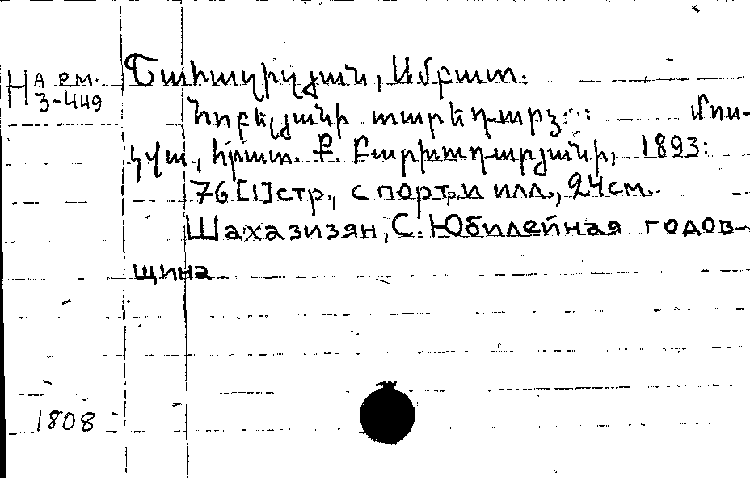 H А рм.
3-449
Շահազիզյան, Սմբատ.
Հոբելյանի տարեդարձ: Մոս-
կվա, հրատ. Ք. Բարխուդարյանի, 1893:
76 [1] стр., с порт. и илл., 24 см.
Шахазизян, С. Юбилейная годов-
щина
1808